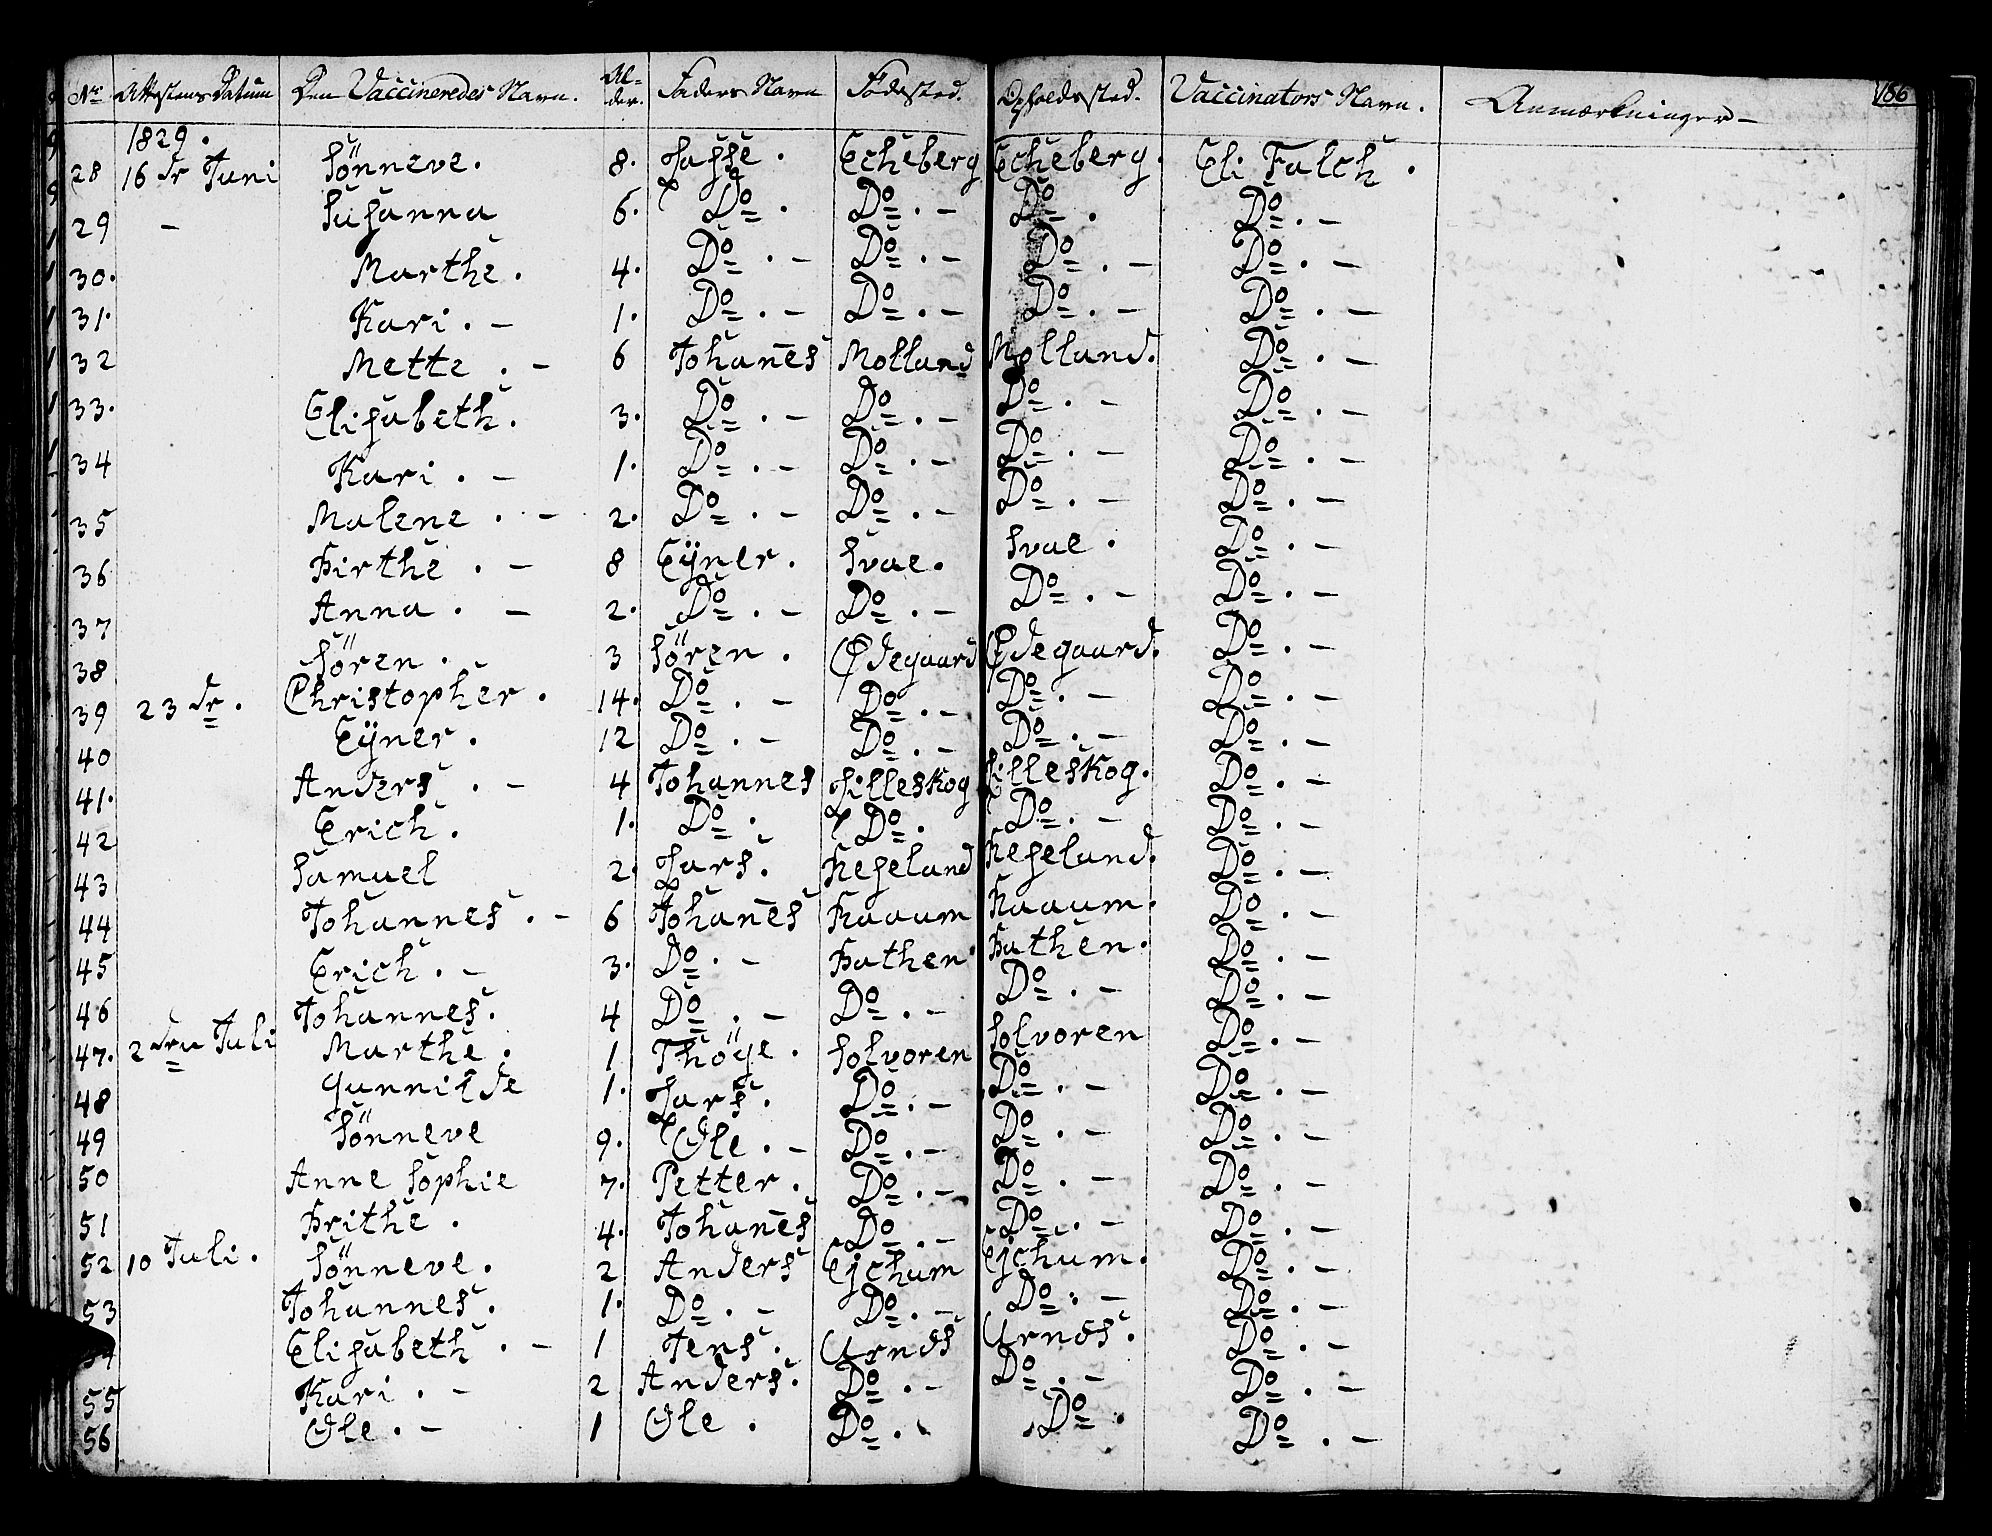 No Attestens Datum Den Vaccineredes Navn. Al-der. Faders Navn Fødested. Opholdssted. Vaccinators Navn. Anmærkninger 186
1829.
28 16 de Juni Sönneve. 8. Lasse. Echeberg Echeberg. Eli Falch.
29 – Susanna 6. Do. Do. – Do. Do. –
30. Marthe. 4. Do. – Do. – Do. – Do. –
31. Kari. – 1. Do. – Do. – Do. – Do. –
32 Mette. – 6 Johanes Molland Molland. Do. –
33. Elisabeth. 3. Do. – Do. – Do. – Do. –
34 Kari. – 1. Do. – Do. – Do. – Do. –
35 Malene. – 2. Do. – Do. – Do. – Do. –
36 Birthe. – 8 Eÿner. Svae. Svae. Do. –
37 Anna. – 2. Do. – Do. – Do. – Do. –
38 Sören. 3 Sören. Ødegaard Ødegaard. Do. –
39 23 de. Christopher. 14. Do. – Do. – Do. – Do. –
40 Eÿner. 12 Do. – Do. – Do. – Do. –
41. Anders. – 4 Johannes Lilleskog Lilleskog. Do. –
42 Erich. 1. Do. Do. Do. – Do. –
43 Samuel 2. Lars. Heseland Heseland. Do. –
44 Johannes. – 6 Johanes Kaaum Kaaum. Do. –
45 Erich. – 3. Do. – Bathen Bathen. Do. –
46 Johannes. 4 Do. – Do. – Do. – Do. –
47. 2 den Juli Marthe. 1 Thöge. Solvoren Solvoren Do. –
48 Gunnilde 1. Lars. Do. – Do. – Do. –
49 Sönneve 9. Ole. – Do. – Do. – Do. –
50 Anne Sophie 7. Petter. Do. – Do. – Do. –
51 Brithe. 4. Johanes Do. – Do. – Do. –
52 10 Juli. Sönneve. 2 Anders Ejchum Ejchum. Do. –
53 Johannes. 1. Do. – Do. – Do. – Do. –
54 Elisabeth. – 1 Jens. Urnæs Urnæs. Do. –
55 Kari. – 2 Anders. Do. – Do. – Do. –
56 Ole. – 1 Ole. Do. Do. Do. –